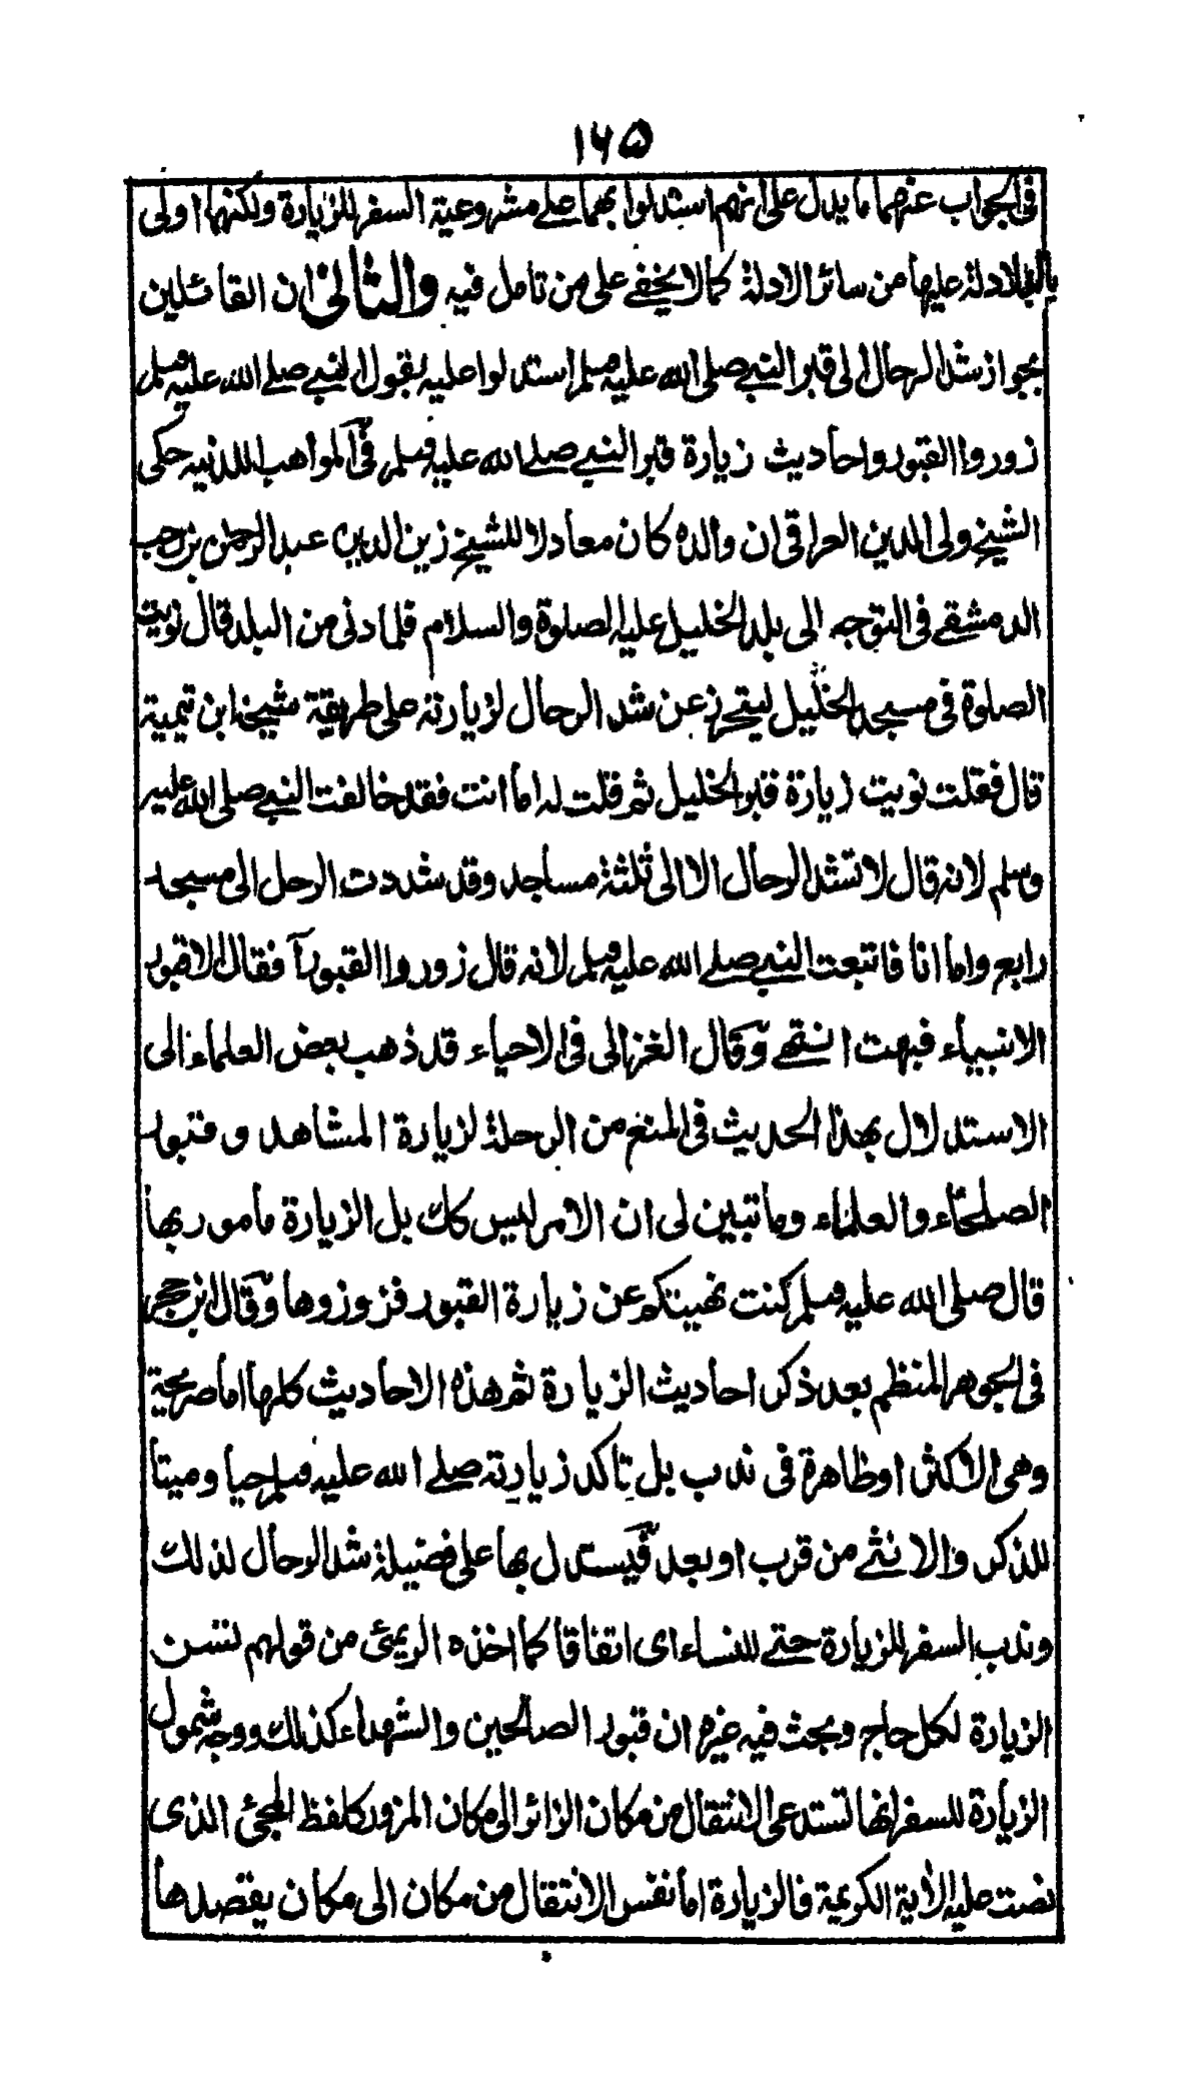 ١٦٥
فی الجواب عنهما ما يدل على انهم استدلوا بهما علے مشروعية السفر للزيارة ولكنهما اولى
بالدلالة عليها من سائر الادلة كما لا يخفے على من تامل فيه والثانی ان القائلين
بجواز شد الرحال الى قبر النبے صلى الله عليه وسلم استدلوا عليه بقول النبے صلے الله عليه وسلم
زوروا القبور واحاديث زيارة قبر النبے صلے الله عليه وسلم فی المواهب اللدنية حكى
الشيخ ولی الدين العراقی ان والده كان معادلا للشيخ زين الدين عبد الرحمن بن رجب
الدمشقے فی التوجه الى بلد الخليل عليه الصلوة والسلام فلما دنى من البلد قال نويت
الصلوة فی مسجد الخليل ليتحرز عن شد الرحال لزيارته على طريقة شيخه ابن تيمية
قال فقلت نويت زيارة قبر الخليل ثم قلت له اما انت فقد خالفت النبے صلى الله عليه
وسلم لانه قال لا تشد الرحال الا الى ثلثة مساجد وقد شددت الرحل الى مسجد
رابع واما انا فاتبعت النبے صلے الله عليه وسلم لانه قال زوروا القبور أفقال الا قبور
الانبياء فبهت انتهے وقال الغزالی فی الاحياء قد ذهب بعض العلماء الى
الاستدلال بهذا الحديث فی المنع من الرحلة لزيارة المشاهد و قبور
الصلحاء والعلماء وما تبين لی ان الامر ليس كك بل الزيارة مأمور بها
قال صلى الله عليه وسلم كنت نهيتكم عن زيارة القبور فزوروها وقال ابن حجر
فی الجوهر المنظم بعد ذكر احاديث الزيارة ثم هذه الاحاديث كلها اما صريحة
وهی الاكثر او ظاهرة فی ندب بل تأكد زيارته صلے الله عليه وسلم حيا وميتا
للذكر والانثے من قرب او بعد فيستدل بها على فضيلة شد الرحال لذلك
وندب السفر للزيارة حتے للنساء ای اتفاقا كما اخذه الريمئ من قولهم تسن
الزيارة لكل حاج وبحث فيه غيره ان قبور الصالحين والشهداء كذلك ووجه شمول
الزيارة للسفر انها تستدعی الانتقال من مكان الزائر الى مكان المزور كلفظ المجئ الذی
نصت عليه الآية الكريمة فالزيارة اما نفس الانتقال من مكان الى مكان يقصدها